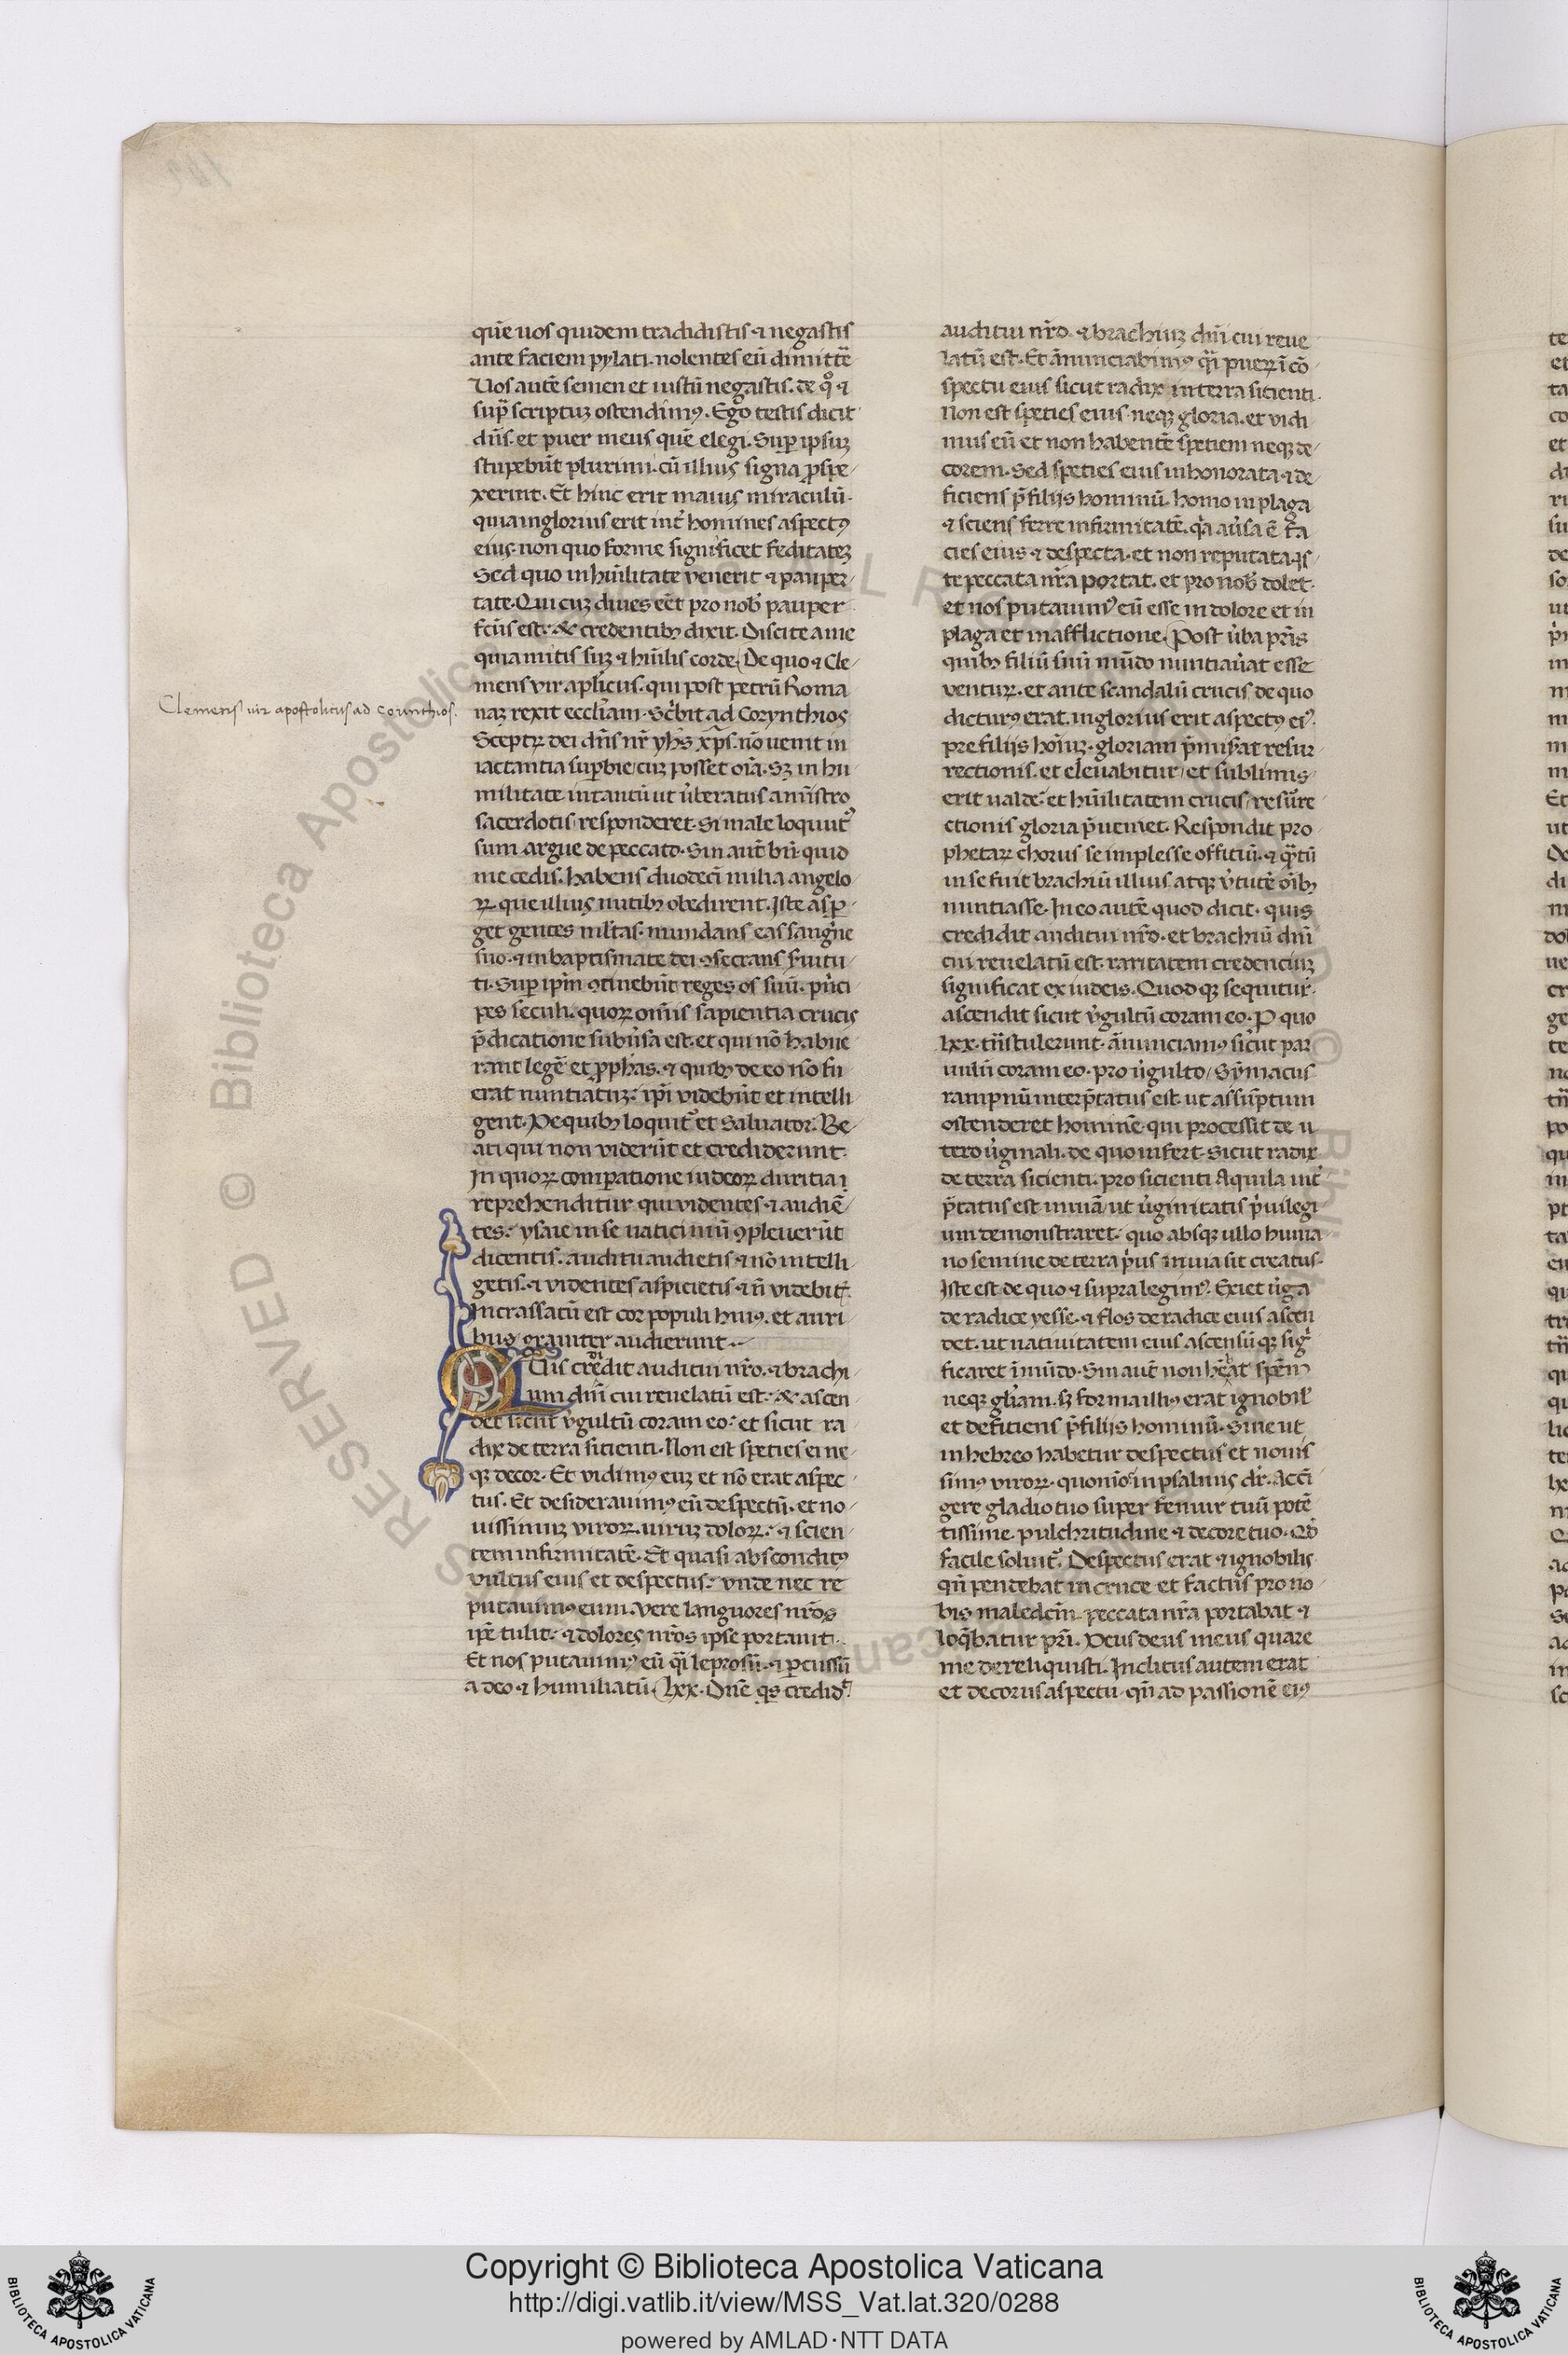 que᷒ uos quidem tradidistis ⁊ negastis
ante faciem pylati. nolentes eū dimitte᷒
Uos autē semen et iustū negastis. de qͦ ⁊
supͣ scriptuꝫ ostendimꝰ. Ego testis dicit
dn̄s. et puer meus quē elegi. Suꝑ ipsuꝫ
stupebūt plurimi. cū illius signa ꝓspe
xerint. Et hinc erit maius miraculū.
quia inglorius erit int̄ homines aspectꝰ
eius. non quo forme significet feditateꝫ
Sed quo in hūilitate venerit ⁊ pauper
tate. Qui cuꝫ diues eēt pro nob̄ pauper
fc̄us est. & credentibꝫ dixit. Discite a me
quia mitis suꝫ ⁊ hūilis corde. De quo ⁊ Cle
mens vir apl̄icus. qui post petrū Roma
naꝫ rexit eccl̄iam. Sc̄bit ad Corynthios
Sceptꝝ dei dn̄s nr̄ yhs̄ xp̄s. nō uenit in
iactantia suꝑbie cuꝫ posset oīa. Sꝫ in hu
militate. in tantū ut v̄beratus a mīstro
sacerdotis responderet. Si male loquutꝰ
sum argue de peccato. Sin aut̄ bn̄. quid
me cedis. habens duodecī milia angelo
ꝝ que ulius nutibꝫ obedirent. Iste asꝑ
get gentes ml̄tas. mundans eas sanguīe
suo. ⁊ in baptismate dei ꝯsecrans seruitu
ti. Suꝑ ip̄m ꝯtinebūt reges os suū. prīci
pes seculi. quoꝝ om̄is sapientia crucis
p̄dicatione subūsa est. et qui nō habue
rant legē et ꝓph̄as. ⁊ quibꝫ de eo nō fu
erat nuntiatuꝫ. ip̄i videbūt et intelli
gent. De quibꝫ loquit᷒ et Saluator. Be
ati qui non viderūt et crediderunt.
In quoꝝ comꝑatione iudeoꝝ duritia
reprehenditur qui videntes ⁊ audiē
tes. ysaie in se uaticiniū ꝯpleuerūt
dicentis. auditu audietis ⁊ nō intelli
getis. ⁊ videntes aspicietis ⁊ n̄ videbit᷒.
Incrassatū est cor populi huiꝰ. et auri
bus grauiter audierunt.
Quis credidit auditui nr̄o. ⁊ brachi
um dn̄i cui reuelatū est. & ascen
det sicut v̄gultū coram eo. et sicut ra
dix de terra sitienti. Non est speties ei ne
qꝫ decor. Et vidimꝰ euꝫ et nō erat aspec
tus. Et desiderauimꝰ eū despectū. et no
uissimuꝫ viroꝝ. uiruꝫ doloꝝ. ⁊ scien
tem infirmitatē. Et quasi absconditꝰ
vultus eius et despectus. vnde nec re
putauimꝰ eum. Vere languores nr̄os
ip̄e tulit. ⁊ dolores nr̄os ipse portauit.
Et nos putauimꝰ eū qͣi leprosū. ⁊ ꝑcussū
a deo ⁊ humiliatū. lxx. Dn̄e qͥs credidᷤ
Clementis᷒ uir apostolicus ad corinthios.
auditui nr̄o. ⁊ brachiuꝫ dn̄i cui reue
latū est. Et ānunciabimꝰ qͣi pueꝝ ī cō
spectu eius sicut radix in terra sicienti.
Non est speties eius neqꝫ gloria. et vidi
mus eū et non habentē spetiem neqꝫ de
corem. Sed speties eius inhonorata ⁊ de
ficiens p̄ filijs hominū. homo in plaga
⁊ sciens ferre infirmitatē. qͣa aūsa ē fa
cies eius ⁊ despecta. et non reputata. is
te peccata nr̄a portat. et pro nob̄ dolet.
et nos putauimꝰ eū esse in dolore et in
plaga et in afflictione. Post v̄ba prīs
quibꝫ filiū suū mūdo nuntiau̇at esse
venturꝝ. et ante scandalū crucis de quo
dicturꝰ erat. inglorius erit aspectꝰ eiꝰ.
pre filijs hoīuꝫ. gloriam p̄misat resur
rectionis. et eleuabitur et sublimis
erit ualde. et hūilitatem crucis resu᷒re
ctionis gloria p̄ueniet. Respondit pro
phetaꝝ chorus se implesse offitiū. ⁊ qͣtū
in se fuit brachiū illius atqꝫ v̄tutē oīb
nuntiasse. In eo autē quod dicit. quis
credidit auditui nr̄o. et brachiū dn̄i
cui reuelatū est. raritatem credenciuꝫ
significat ex iudeis. Quod qꝫ sequitur.
ascendit sicut v̄gultū coram eo. P quo
lxx. trn̄stulerunt. ānunciamꝰ sicut par
uulū coram eo. pro v̄gulto. Sȳmacus
ramp nū interp̄tatus est. ut assūptum
ostenderet hominē qui processit de u
tero v̄ginali. de quo infert. Sicut radix
de terra sicienti. pro sicienti Aquila int̄
p̄tatus est inuiā. ut v̄ginitatis p̄uilegi
um demonstraret. quo absqꝫ ullo huma
no semine de terra pͥus inuia sit creatus.
Iste est de quo ⁊ supra legimꝰ. Exiet v̄ga
de radice yesse. ⁊ flos de radice eius ascen
det. ut natiuitatem eius ascensū qꝫ sigͥ
ficaret ī mūdo. Sin aut̄ non he᷒at spēm
neqꝫ gl̄iam. sꝫ forma illiꝰ erat ignobil᷒
et defitiens p̄ filijs hominū. Siue ut
in hebreo habetur despectus et nouis
simꝰ viroꝝ. quoniō in psalmis dr̄. Accī
gere gladio tuo super femur tuū potē
tissime. pulchritudine ⁊ decore tuo. Qd̄
facile soluit᷒. Despectus erat ⁊ ignobilis
qn̄ pendebat in cruce et factus pro no
bis maledcm̄. peccata nr̄a portabat ⁊
loqͣbatur pr̄i. Deus deus meus quare
me dereliquisti. Inclitus autem erat
et decorus aspectu. qn̄ ad passionē eiꝰ
Copyright © Biblioteca Apostolica Vaticana
http://digi.vatlib.it/view/MSS_Vat.lat.320/0288
powered by AMLAD·NTT DATA
BIBLIOTECA APOSTOLICA VATICANA
BIBLIOTECA APOSTOLICA VATICANA